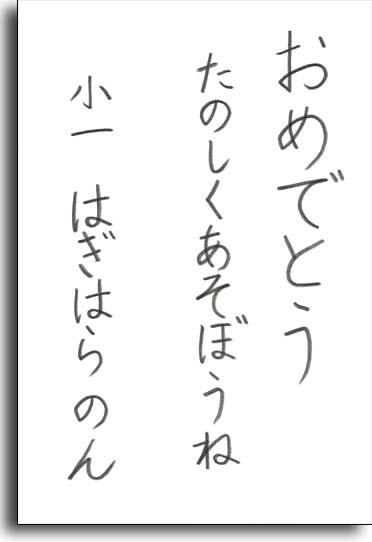 おめでとう
たのしくあそぼうね
小一 はぎはら のん